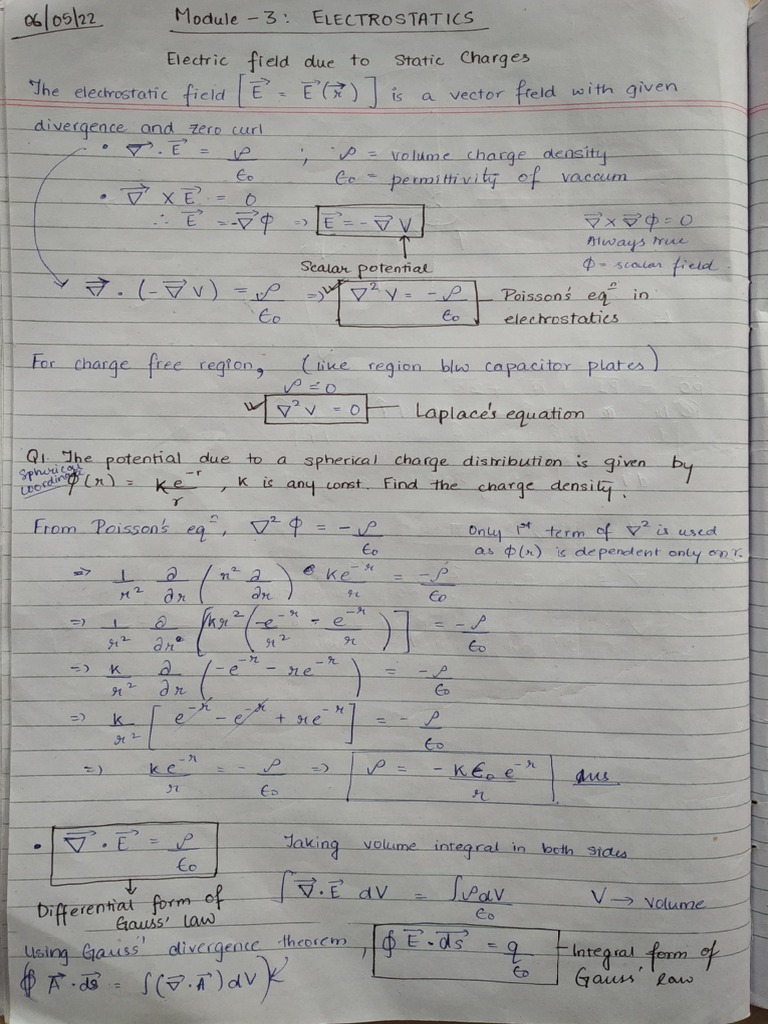 06/05/22 Module - 3: ELECTROSTATICS
Electric field due to Static Charges
The electrostatic field [E⃗ = E⃗(r⃗)] is a vector field with given
divergence and zero curl
• ∇⃗ . E⃗ = ρ/ε₀ ; ρ = volume charge density
ε₀ = permittivity of vaccum
• ∇⃗ × E⃗ = 0
∴ E⃗ = -∇⃗φ => E⃗ = -∇⃗V
∇⃗ × ∇⃗φ = 0
Always true
φ = scalar field
Scalar potential
∇⃗ . (-∇⃗V) = ρ/ε₀ => ∇²V = -ρ/ε₀ Poisson's eqⁿ in
electrostatics
For charge free region, (like region b/w capacitor plates)
ρ = 0
∇²V = 0 Laplace's equation
Q1. The potential due to a spherical charge distribution is given by
Spherical coordinates
φ(r) = k e⁻ʳ/r , K is any const. Find the charge density.
From Poisson's eqⁿ, ∇²φ = -ρ/ε₀
Only 1st term of ∇² is used
as φ(r) is dependent only on r.
=> 1/r² ∂/∂r (r² ∂/∂r) ke⁻ʳ/r = -ρ/ε₀
=> 1/r² ∂/∂r [kr² (-e⁻ʳ/r² - e⁻ʳ/r)] = -ρ/ε₀
=> k/r² ∂/∂r (-e⁻ʳ - re⁻ʳ) = -ρ/ε₀
=> k/r² [e⁻ʳ - e⁻ʳ + re⁻ʳ] = -ρ/ε₀
=> ke⁻ʳ/r = -ρ/ε₀ => ρ = -Kε₀e⁻ʳ/r ans
• ∇⃗ . E⃗ = ρ/ε₀ Taking volume integral in both sides
Differential form of
Gauss' law
∫∇⃗.E⃗ dV = ∫ρdV/ε₀ V → volume
Using Gauss' divergence theorem, ∮E⃗.ds⃗ = q/ε₀ Integral form of
Gauss' law
∮A⃗.ds⃗ = ∫(∇⃗.A⃗)dV